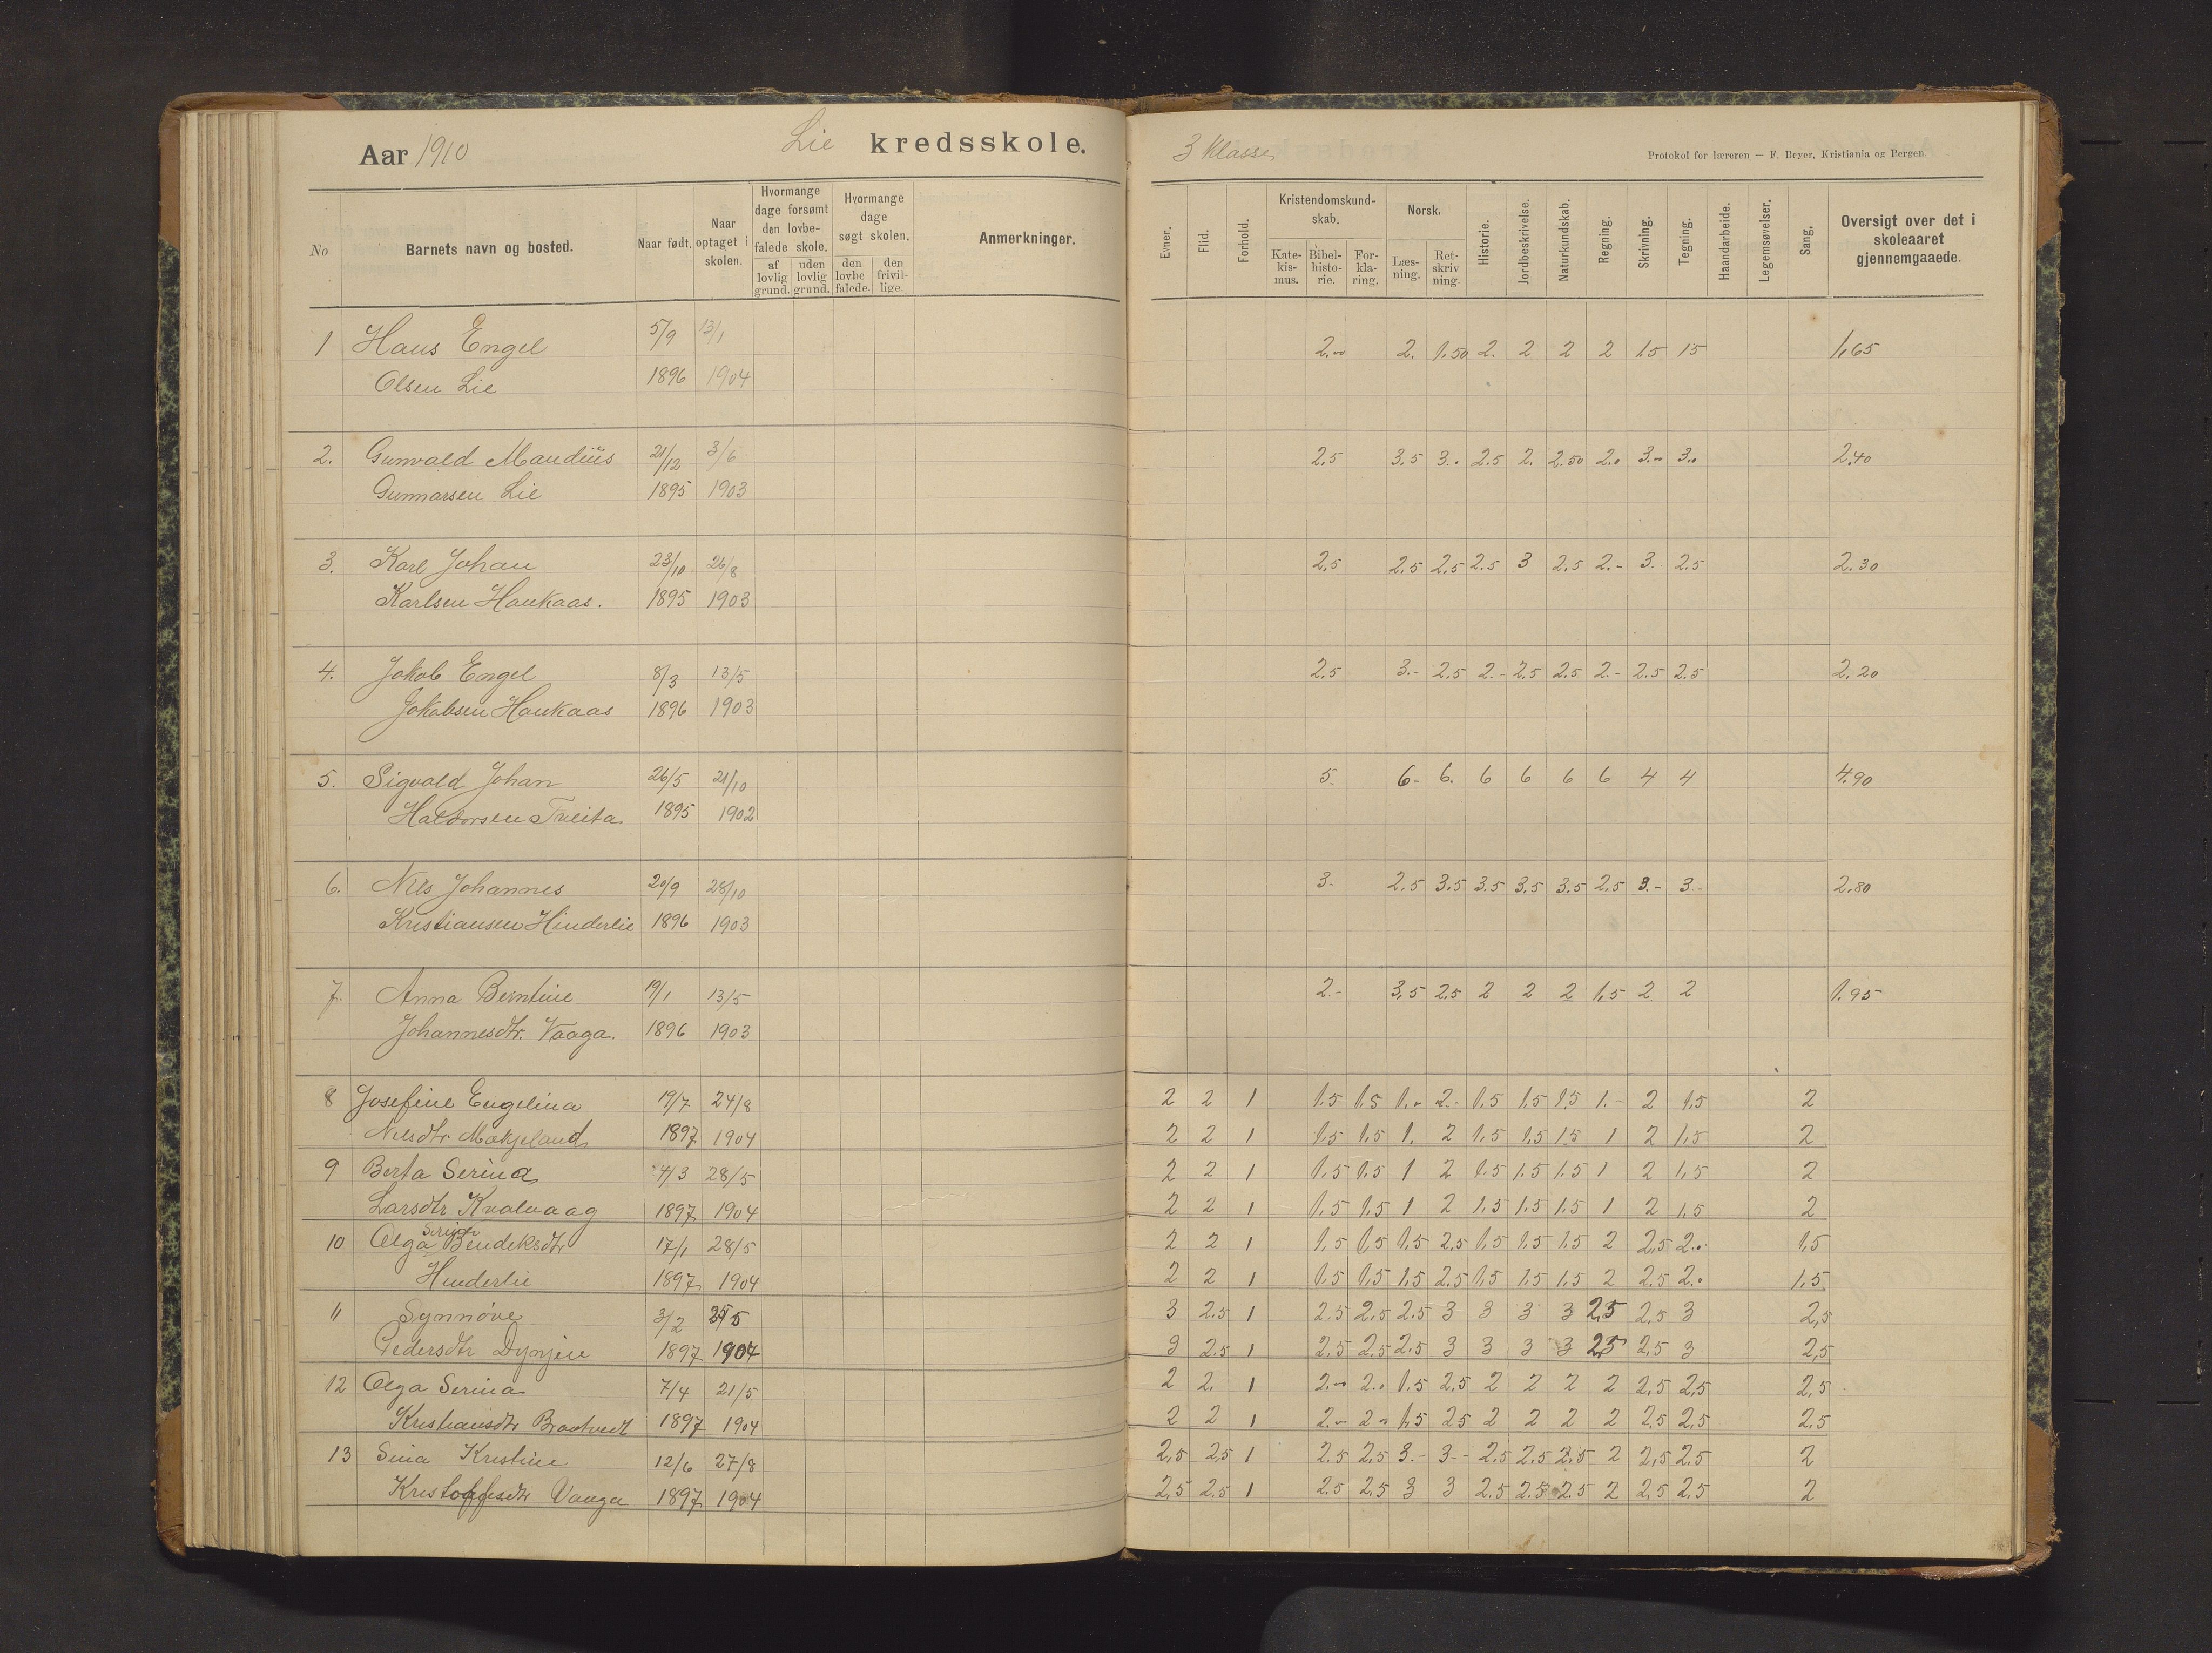 Aar 1910
Lie kredsskole.
3 Klasse
Protokol for læreren — F. Beyer, Kristiania og Bergen.
No
Barnets navn og bosted.
Naar født.
Naar optaget i skolen.
Hvormange dage forsømt den lovbefalede skole.
af lovlig grund.
uden lovlig grund.
Hvormange dage søgt skolen.
den lovbefalede.
den frivillige.
Anmerkninger.
Evner.
Flid.
Forhold.
Kristendomskundskab.
Katekismus.
Bibelhistorie.
Forklaring.
Norsk.
Læsning.
Retskrivning.
Historie.
Jordbeskrivelse.
Naturkundskab.
Regning.
Skrivning.
Tegning.
Haandarbeide.
Legemsøvelser.
Sang.
Oversigt over det i skoleaaret gjennemgaaede.
1 Hans Engel 5/9 13/1 2.00 2. 1.50 2. 2 2 2 1.5 1.5 1,65
Olsen Lie 1896 1904
2. Gunvald Maudius 21/12 3/6 2.5 3.5 3.0 2.5 2. 2.50 2.0 3.- 3.0 2.40
Gunnarsen Lie 1895 1903
3. Karl Johan 23/10 26/8 2.5 2.5 2.5 2.5 3 2.5 2.- 3. 2.5 2.30
Karlsen Haukaas. 1895 1903
4. Jakob Engel 8/3 13/5 2.5 3.- 2.5 2.- 2.5 2.5 2.- 2.5 2.5 2,20
Jakobsen Haukaas 1896 1903
5. Sigvald Johan 26/5 21/10 5. 6- 6. 6 6 6 6 4 4 4.90
Haldorsen Tveita 1895 1902
6. Nils Johannes 20/9 28/10 3. 2.5 3.5 3.5 3.5 3.5 2.5 3.- 3.- 2.80
Kristiansen Hinderlie 1896 1903
7. Anna Berntine 19/1 13/5 2.- 3,5 2.5 2 2 2 1,5 2 2 1.95
Johannesdtr. Vaaga. 1896 1903
8 Josefine Engelina 19/7 24/8 2 2 1 1.5 1.5 1.- 2.- 1.5 1.5 1.5 1.- 2 1.5 2
Nilsdtr Mokjeland 1897 1904 2 2 1 1.5 1.5 1. 2 1.5 1.5 1.5 1 2 1,5 2
9 Berta Serina 4/3 28/5 2 2 1 1.5 1.5 1 2 1.5 1.5 1.5 1 2 1,5 2
Larsdtr Kvalvaag 1897 1904 2 2 1 1.5 1.5 1 2 1.5 1.5 1.5 1 2 1,5 2
10 Olga Serina Bendeksdtr 17/1 28/5 2 2 1 1.5 1.5 1.5 2.5 1.5 1.5 1.5 2 2,5 2.0 1,5
Hinderlie 1897 1904 2 2 1 1.5 1.5 1.5 2.5 1.5 1.5 1.5 2 2.5 2.0 1.5
11 Synnöve 3/2 3 2.5 1 2.5 2,5 2.5 3 3 3 3 2,5 2,5 3 2,5
Pedersdtr Dynjen 1897 1904 3 2.5 1 2.5 2.5 2.5 3 3 3 3 2,5 2,5 3 2,5
12 Olga Serina 7/4 21/5 2 2. 1 2.- 2.0 1.5 2,5 2 2 2 2 2,5 2,5 2,5
Kristiansdtr Braatvedt 1897 1904 2 2 1 2.- 2- 1.5 2.5 2 2 2 2 2.5 2.5 2.5
13 Sina Kristine 12/6 27/8 2,5 2.5 1 2.5 2,5 3.- 3- 2.5 2.5 2.5 2 2,5 2.5 2
Kristoffesdtr Vaaga 1897 1904 2,5 2.5 1 2.5 2.5 3 3 2.5 2.5 2.5 2 2,5 2.5 2